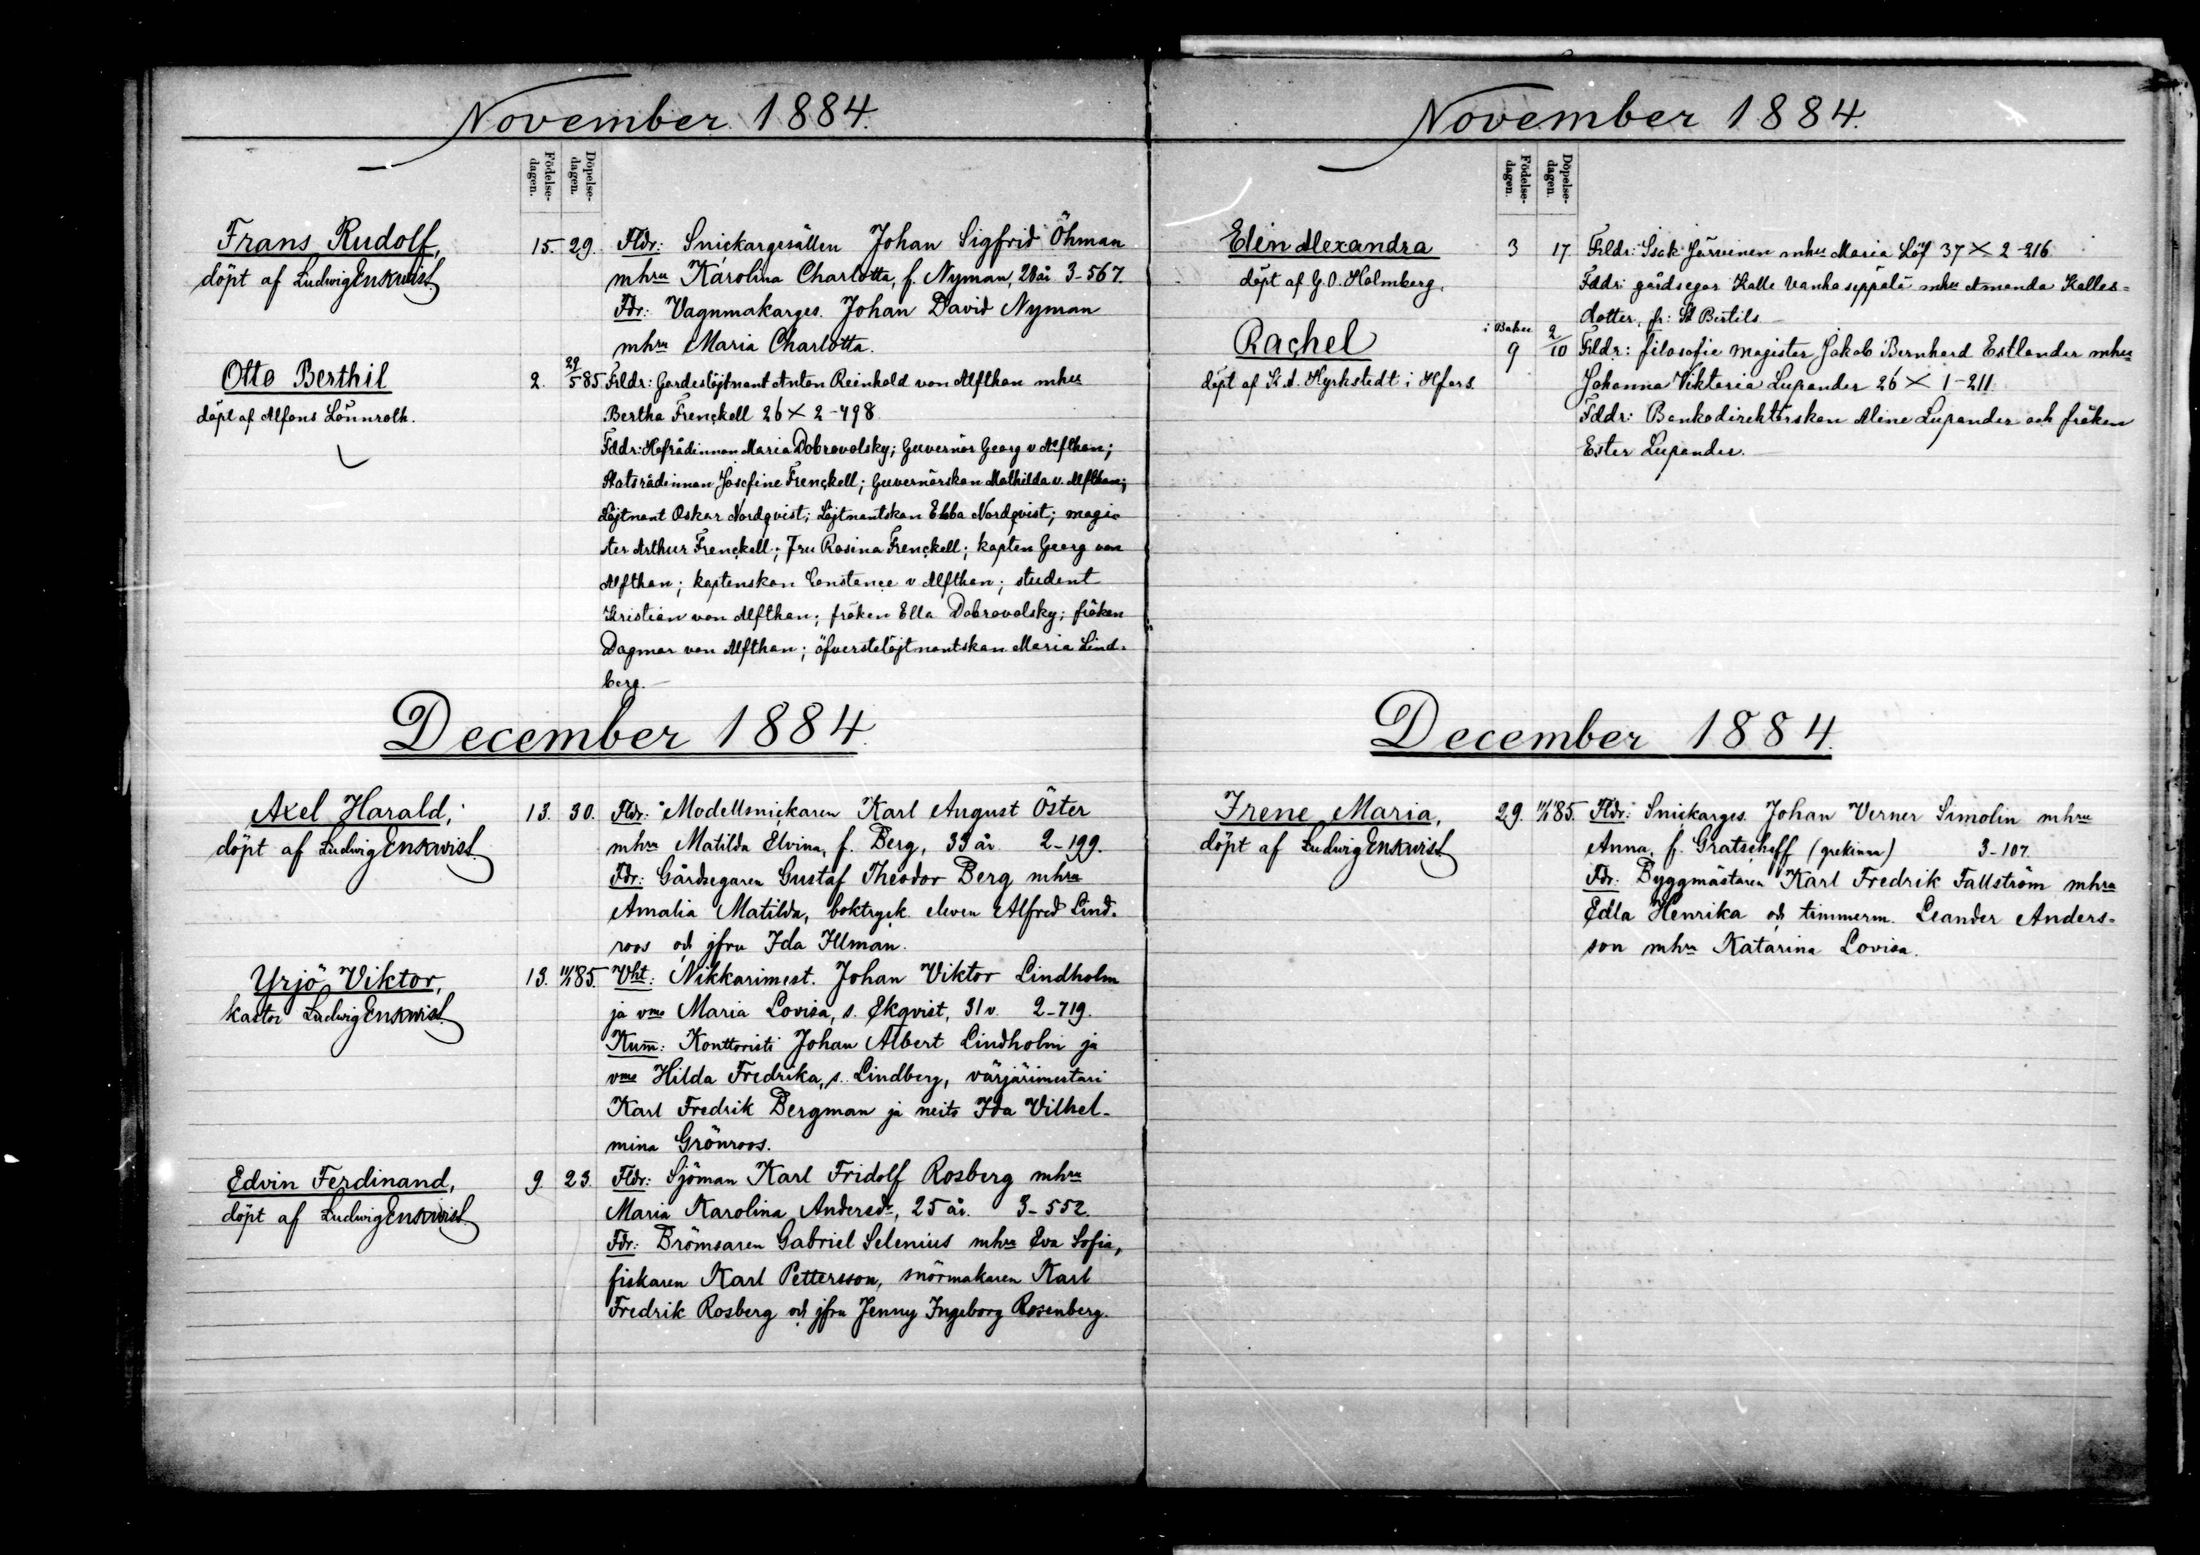 November 1884.
Födelse-
dagen.
Döpelse-
dagen.
Frans Rudolf,
döpt af Ludwig Enkvist.
15. 29. Fldr: Snickargesällen Johan Sigfrid Öhman
mhru Karolina Charlotta, f. Nyman, 28 år 3-567.
Fdr: Vagnmakarges. Johan David Nyman
mhru Maria Charlotta.
Otto Berthil
döpt af Alfons Lönnroth.
2. 29/5 85. Frldr: Gardeslöjtnant Anton Reinhold von Alfthan mhu
Bertha Frenckell 26 × 2-498
Fddr: Hofrådinnan Maria Dobrovolsky; Guvernör Georg v Alfthan;
Statsrådinnan Josefine Frenckell; Guvernörskan Mathilda v. Alfthan;
Löjtnant Oskar Nordqvist; Löjtnantskan Ebba Nordqvist; magis
ter Arthur Frenckell; Fru Rosina Frenckell; kapten Georg von
Alfthan; kaptenskan Constance v Alfthan; student
Kristian von Alfthan; fröken Ella Dobrovolsky; fröken
Dagmar von Alfthan; öfverstelöjtnantskan Maria Lind-
berg.
December 1884.
Axel Harald,
döpt af Ludwig Enkvist.
13. 30. Fldr: Modellsnickaren Karl August Öster
mhru Matilda Elvina, f. Berg, 33 år 2-199.
Fdr: Gårdsegaren Gustaf Theodor Berg mhru
Amalia Matilda, boktryck. eleven Alfred Lind-
roos och jfru Ida Illman.
Yrjö Viktor,
kastoi Ludwig Enkvist.
13. 11/1 85. Vht: Nikkarimest. Johan Viktor Lindholm
ja vmo Maria Lovisa, s. Ekqvist, 31 v. 2-719.
Kum: Konttoristi Johan Albert Lindholm ja
vmo Hilda Fredrika, s. Lindberg, värjärimestari
Karl Fredrik Bergman ja neits Ida Vilhel-
mina Grönroos.
Edvin Ferdinand,
döpt af Ludwig Enkvist.
9. 23. Fldr: Sjöman Karl Fridolf Rosberg mhru
Maria Karolina Andersdr, 25 år. 3-552.
Fdr: Brömsaren Gabriel Selenius mhru Eva Sofia,
fiskaren Karl Pettersson, snörmakaren Karl
Fredrik Rosberg och jfru Jenny Ingeborg Rosenberg.
November 1884.
Födelse-
dagen.
Döpelse-
dagen.
Elin Alexandra
döpt af G. O. Holmberg.
3 17. Frldr: Isak Järvinen mhu Maria Löf 37 × 2-216
Fddr: gårdsegar Kalle Vanhaseppälä mhu Amanda Kalles-
dotter, fr: St Bertils
Rachel
döpt af K. A. Hyrkstedt i Hfors.
i Baku
9 2/10 Frldr: filosofie magister Jakob Bernhard Estlander mhu
Johanna Viktoria Lupander 26 × 1-211
Fddr: Bankodirektörskan Aline Lupander och fröken
Ester Lupander.
December 1884.
Irene Maria,
döpt af Ludwig Enkvist.
29. 11/1 85. Fldr: Snickarges. Johan Verner Simolin mhru
Anna, f. Gratscheff (grekinna) 3-107.
Fdr: Byggmästaren Karl Fredrik Fallström mhru
Edla Henrika och timmerm. Leander Anders-
son mhru Katarina Lovisa.